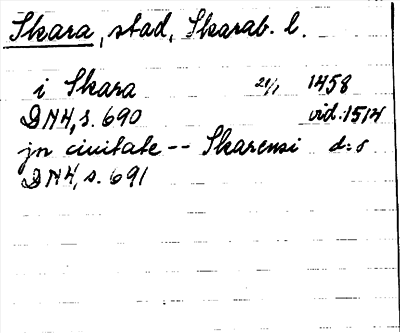 Skara, stad, Skarab. l.
i Skara 21/1 1458
DN4, s. 690 vid. 1514
jn ciuitate -- Skarensi d:o
DN4, s. 691